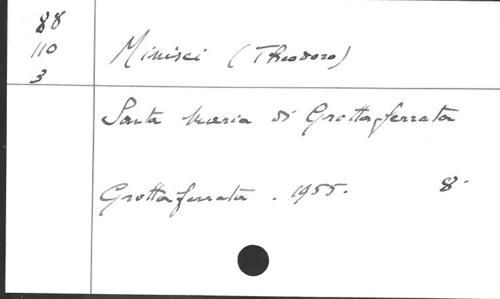 88
110
3
Minisci (Theodoro)
Santa Maria di Grottaferrata
Grottaferrata. 1955. 8°